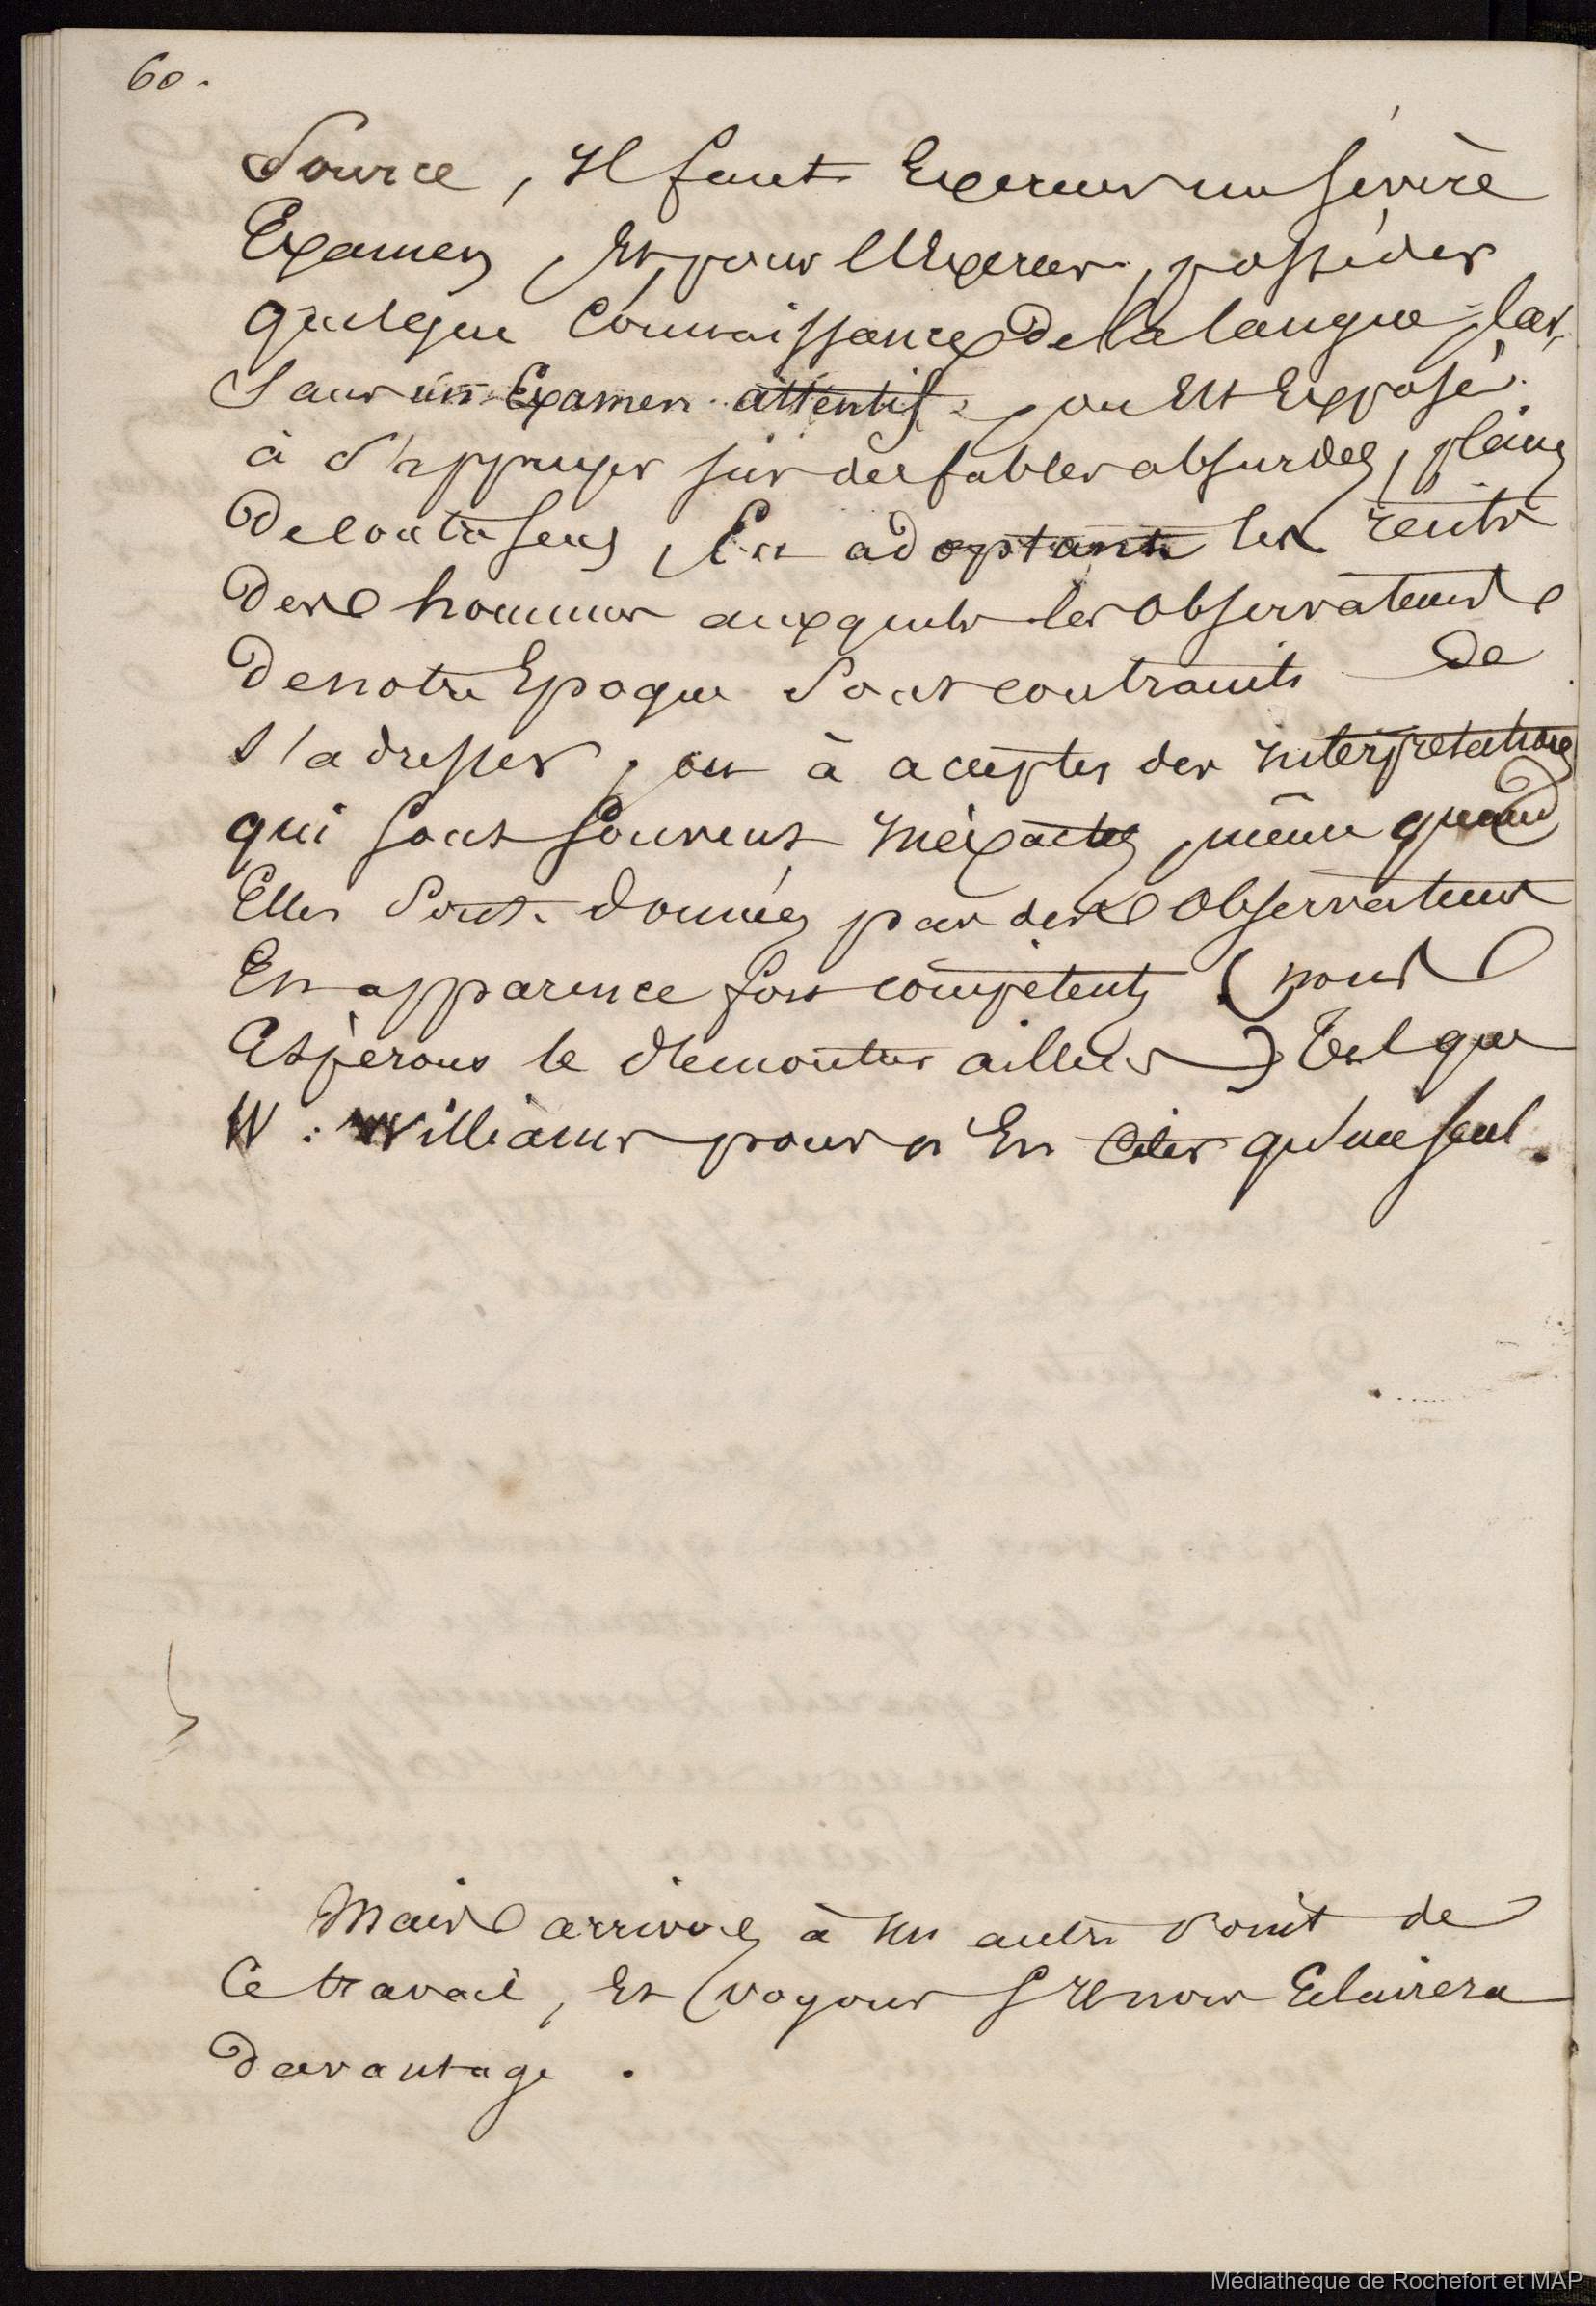 60.
Source, Il faut Exercer un sévère
Examen, Et, pour l'Exercer, posséder
quelque Connaissance de la langue; Car,
Sans un Examen attentif, on Est Exposé
à s'appuyer sur des fables absurdes, pleines
De contre sens, En adoptant les récits
Des hommes auxquels les Observateurs
De notre Epoque Sont contraints de
s'adresser, ou à accepter des interprétations
qui sont souvent inéxactes, même quand
Elles Sont données par des Observateurs
En apparence fort compétents (nous
Espérons le démontrer ailleurs) Tel que
W. Williams pour n'En Citer qu'un seul.
Mais arrivons à un autre Point de
Ce travail, Et voyons S'Il nous Eclairera
Davantage.
Médiathèque de Rochefort et MAP